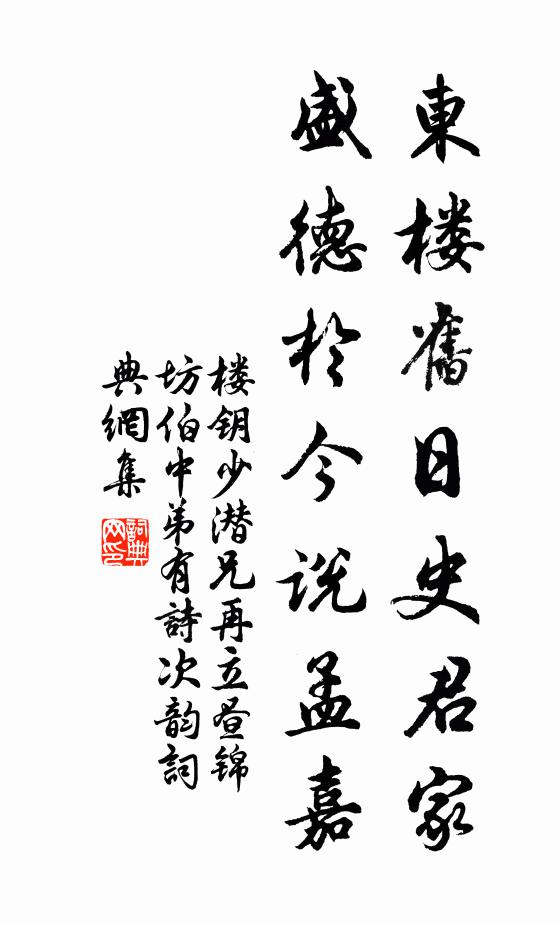 東楼舊日史君家
盛德於今说孟嘉
楼钥少潜兄再立昼锦
坊伯中弟有詩次韵詞
典網集
詞典网印